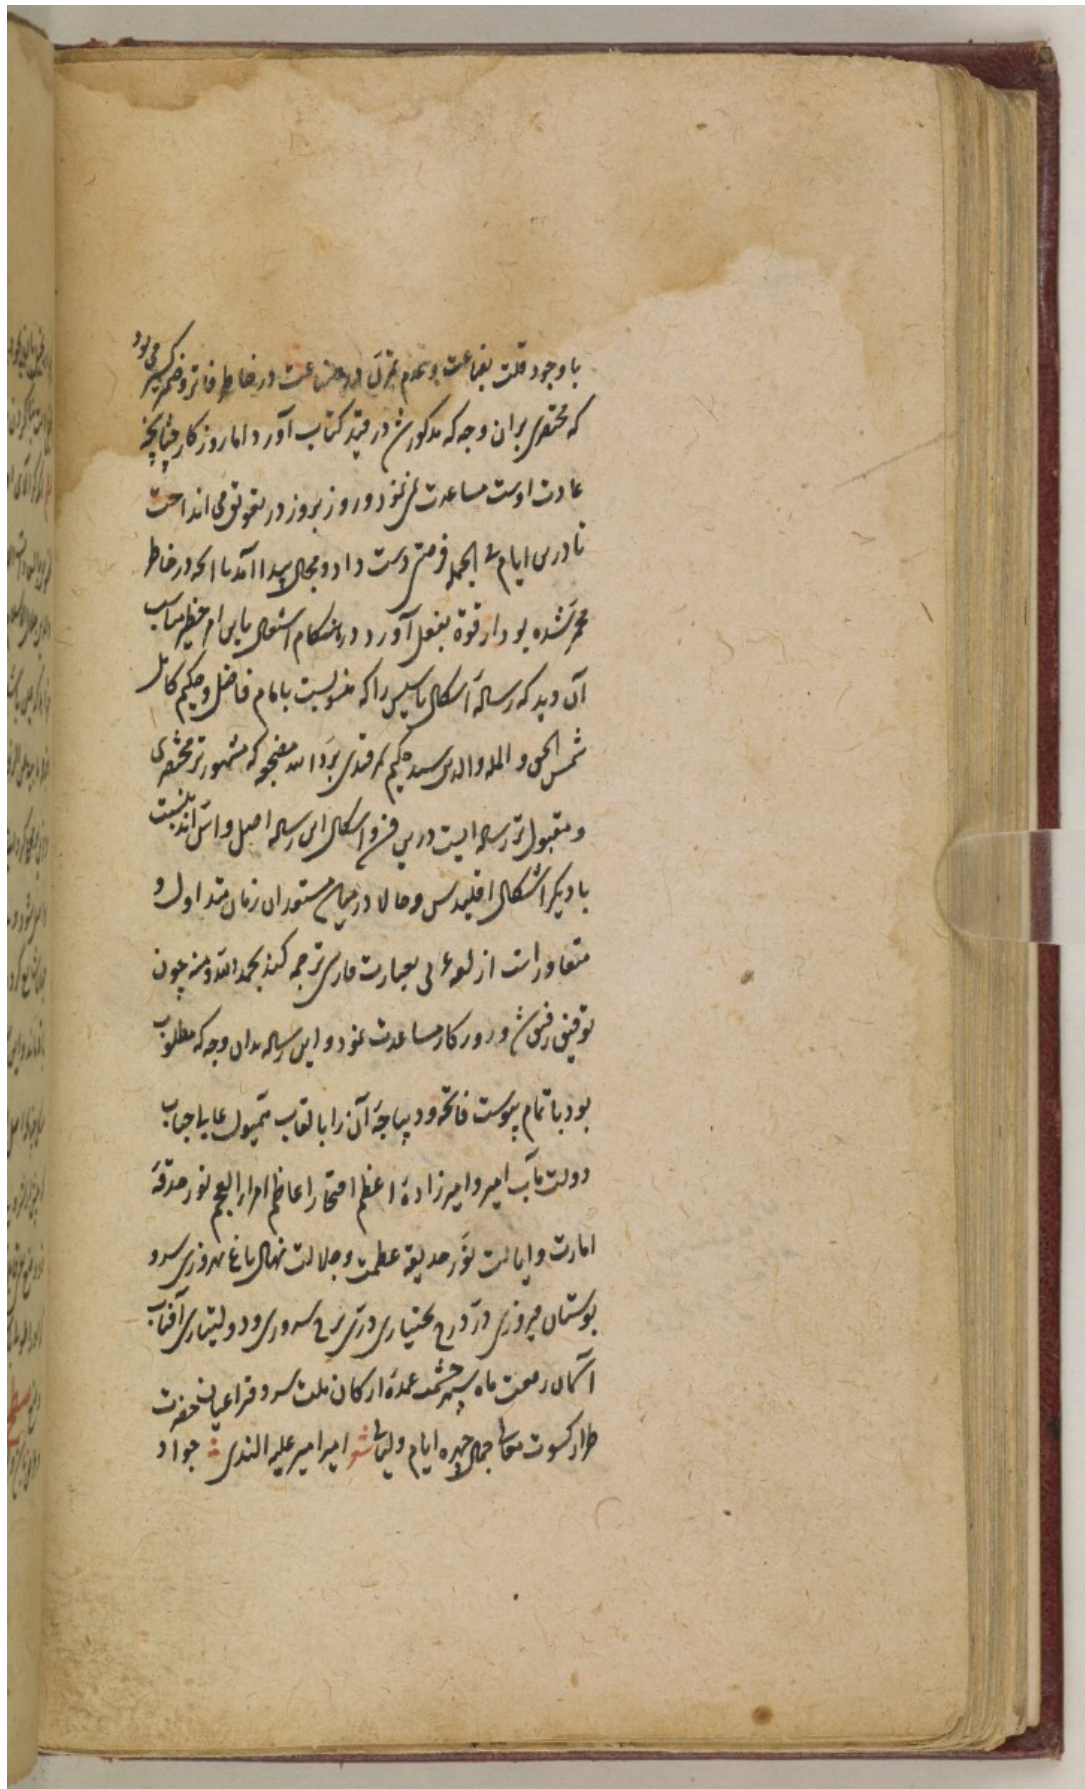 با وجود قلت بضاعت و عدم تمرّن در صناعت در خاطر فاتر و ضمیر کسیر می بود
که مختصری بران وجه که مذکور شد در قید کتاب آورد اما روزکار چنانچه
عادت اوست مساعدت نمی نمود و روز بروز در تعویق می انداخت
تا درین ایام فی الجمله فرصتی دست داد و مجالی پیدا آمد تا انچه در خاطر
مخمر شده بود از قوة بفعل آورد در هنکام اشتغال باین امر خطیر مناسب
آن دید که رسالهٔ اشکال تاسیس را که منسوبست بامام فاضل و حکیم کامل
شمس الحق و المله والدین سید حکیم سمرقندی برّد الله مضجعه که مشهورتر مختصری
و مقبول تر رساله ایست درین فن و اشکال این رساله اصل و اس اند بنسبت
با دیکر اشکال اقلیدس و حالا در میان مستعدان زمان متداول و
متعاور است از لغه عربی بعبارت فارسی ترجمه کند بحمد الله و منه چون
توفیق رفیق شد و روزکار مساعدت نمود و این رساله بدان وجه که مطلوب
بود باتمام پیوست فاتحه و دیباجهٔ آن را بالقاب همیون عالیجناب
دولت مآب امیر و امیرزادهٔ اعظم افتخار اعاظم امراء العجم نور حدقهٔ
امارت و ایالت نَور حدیقهٔ عظمت و جلالت نهال باغ بهروزی سرو
بوستان فیروزی درّ درج بختیاری درّی برج سروری و دولتیاری آفتاب
آسمان رفعت ماه سپهر حشمت عمدهٔ ارکان ملت سردفتر اعیان حضرت
طراز کسوت معالی جمال چهره ایام ولیالی شعر امیر امیر علیه الندی جواد